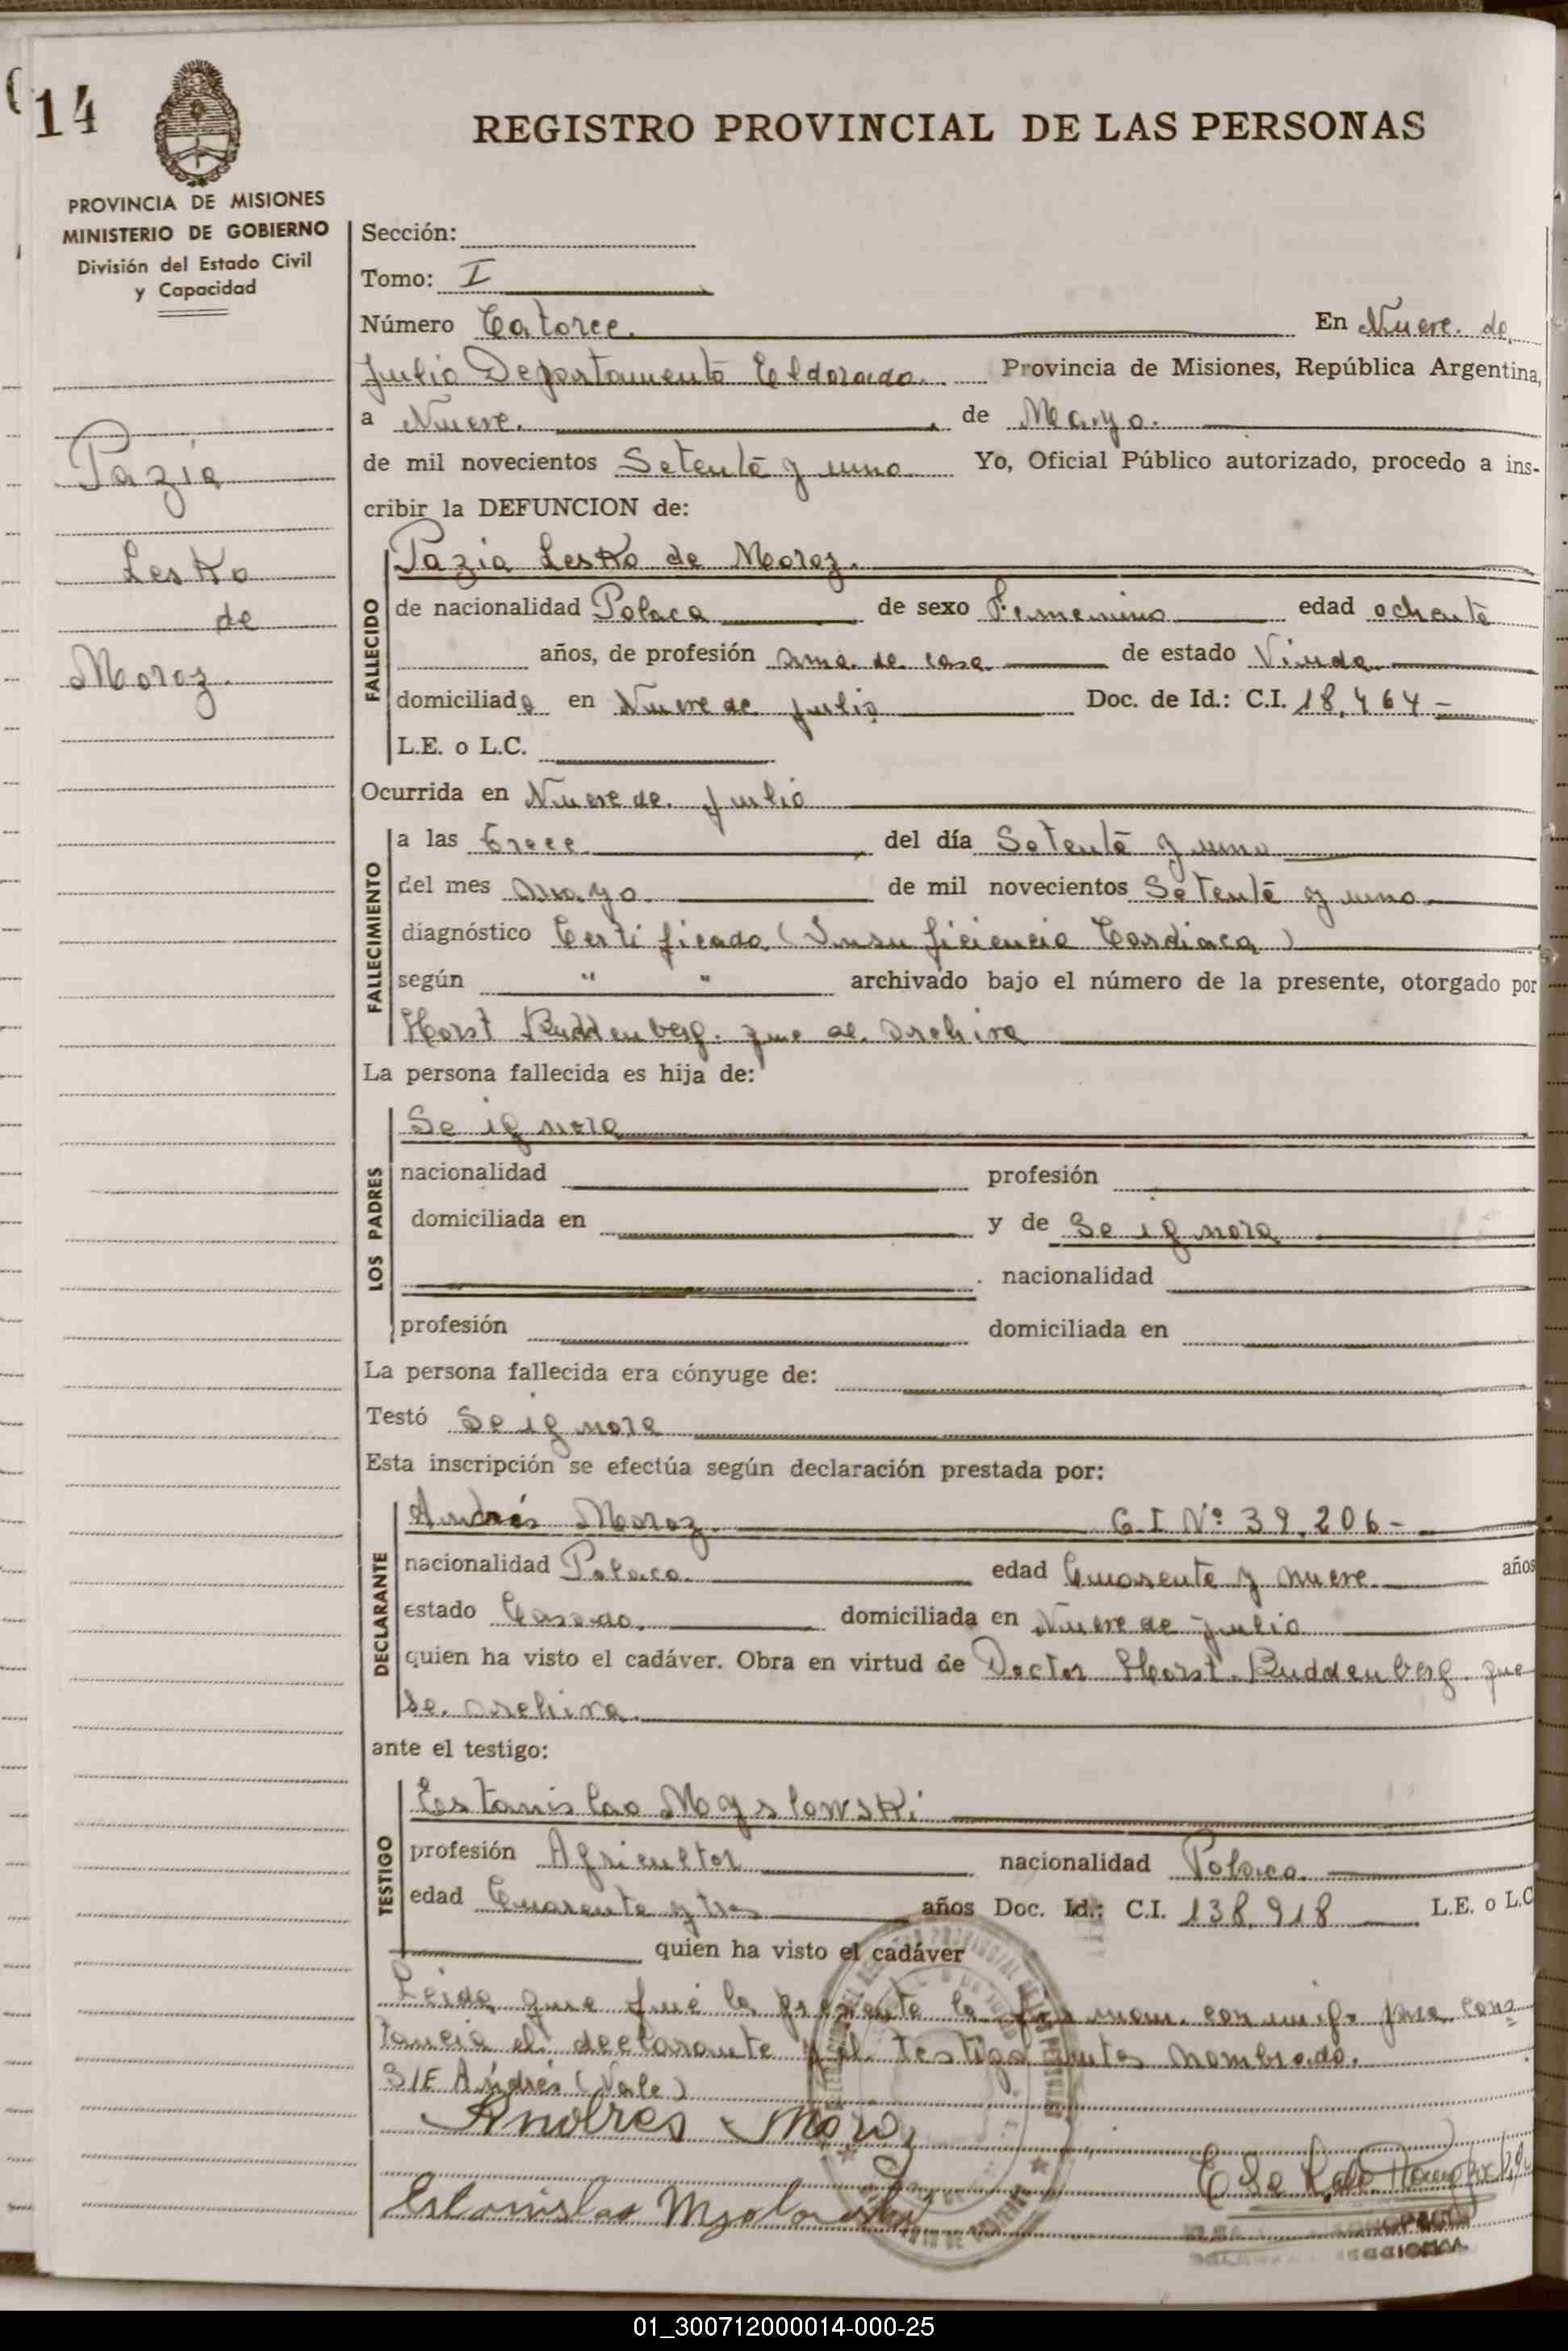 14
REGISTRO PROVINCIAL DE LAS PERSONAS
PROVINCIA DE MISIONES
MINISTERIO DE GOBIERNO
División del Estado Civil
y Capacidad
Pazia
Lesko
de
Moroz.
Sección:
Tomo: I
Número Catorce. En Nueve de
Julio Departamento Eldorado. Provincia de Misiones, República Argentina,
a Nueve. de Mayo.
de mil novecientos Setenta y uno Yo, Oficial Público autorizado, procedo a ins-
cribir la DEFUNCION de:
FALLECIDO
Pazia Lesko de Moroz.
de nacionalidad Polaca de sexo Femenino edad ochenta
años, de profesión ama de casa de estado Viuda
domiciliada en Nueve de Julio Doc. de Id.: C.I. 18.464-
L.E. o L.C.
Ocurrida en Nueve de Julio
FALLECIMIENTO
a las trece del día Setenta y uno
del mes mayo de mil novecientos Setenta y uno
diagnóstico Certificado (Insuficiencia Cardiaca)
según " " archivado bajo el número de la presente, otorgado por
Horst Buddenberg. que se archiva
La persona fallecida es hija de:
LOS PADRES
Se ignora
nacionalidad profesión
domiciliada en y de Se ignora
nacionalidad
profesión domiciliada en
La persona fallecida era cónyuge de:
Testó Se ignora
Esta inscripción se efectúa según declaración prestada por:
DECLARANTE
Andrés Moroz. C.I Nº 39.206-
nacionalidad Polaca edad Cuarenta y nueve años
estado Casado. domiciliada en Nueve de Julio
quien ha visto el cadáver. Obra en virtud de Doctor Horst Buddenberg. que
se archiva.
ante el testigo:
TESTIGO
Estanislao Myslowski
profesión Agricultor nacionalidad Polaca
edad Cuarenta y tres años Doc. Id.: C.I. 138.918 L.E. o L.C
quien ha visto el cadáver
Leida que fué la presente la firman conmigo para cons
tancia el declarante y el testigo antes nombrado.
S/E Andrés (Vale)
Andres Moroz
Estanislao Myslowski
01_300712000014-000-25